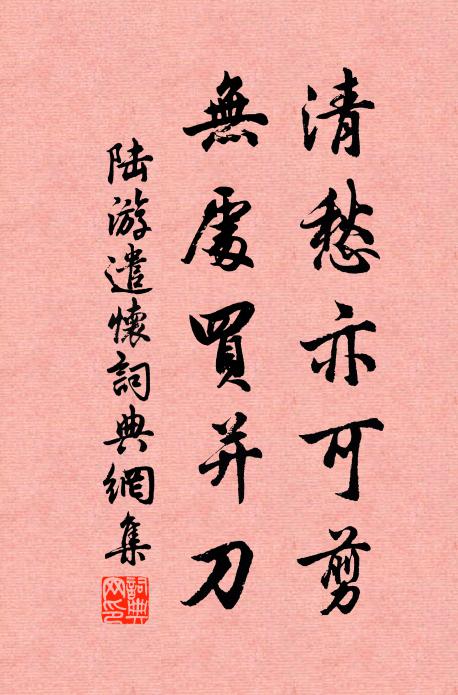 清愁亦可剪
無處買并刀
陆游遣懷詞典網集
詞典網印